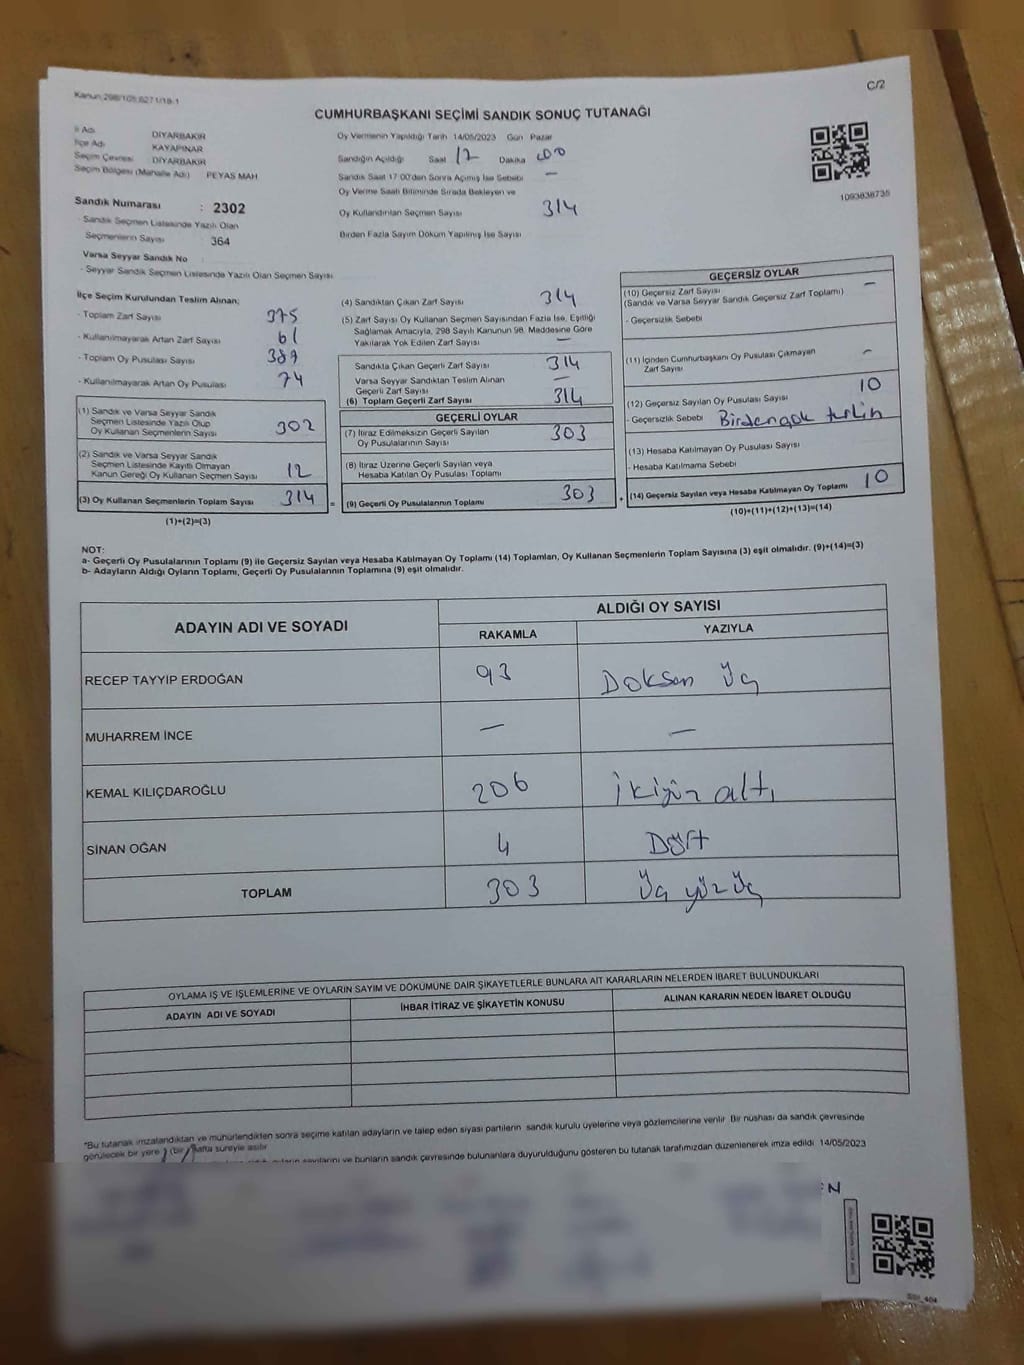 Kanun:298/105;6271/18-1
C/2
CUMHURBAŞKANI SEÇİMİ SANDIK SONUÇ TUTANAĞI
İl Adı DİYARBAKIR
İlçe Adı KAYAPINAR
Seçim Çevresi DİYARBAKIR
Seçim Bölgesi (Mahalle Adı) PEYAS MAH
Sandık Numarası : 2302
- Sandık Seçmen Listesinde Yazılı Olan
Seçmenlerin Sayısı 364
Varsa Seyyar Sandık No
- Seyyar Sandık Seçmen Listesinde Yazılı Olan Seçmen Sayısı
Oy Vermenin Yapıldığı Tarih 14/05/2023 Gün Pazar
Sandığın Açıldığı Saat 17 Dakika 00
Sandık Saat 17:00'den Sonra Açılmış İse Sebebi —
Oy Verme Saati Bitiminde Sırada Bekleyen ve
Oy Kullandırılan Seçmen Sayısı 314
Birden Fazla Sayım Döküm Yapılmış İse Sayısı
1093838735
İlçe Seçim Kurulundan Teslim Alınan;
- Toplam Zarf Sayısı 375
- Kullanılmayarak Artan Zarf Sayısı 61
- Toplam Oy Pusulası Sayısı 389
- Kullanılmayarak Artan Oy Pusulası 74
(1) Sandık ve Varsa Seyyar Sandık
Seçmen Listesinde Yazılı Olup
Oy Kullanan Seçmenlerin Sayısı 302
(2) Sandık ve Varsa Seyyar Sandık
Seçmen Listesinde Kayıtlı Olmayan
Kanun Gereği Oy Kullanan Seçmen Sayısı 12
(3) Oy Kullanan Seçmenlerin Toplam Sayısı 314 =
(1)+(2)=(3)
(4) Sandıktan Çıkan Zarf Sayısı 314
(5) Zarf Sayısı Oy Kullanan Seçmen Sayısından Fazla İse, Eşitliği
Sağlamak Amacıyla, 298 Sayılı Kanunun 98. Maddesine Göre
Yakılarak Yok Edilen Zarf Sayısı —
Sandıkta Çıkan Geçerli Zarf Sayısı 314
Varsa Seyyar Sandıktan Teslim Alınan
Geçerli Zarf Sayısı —
(6) Toplam Geçerli Zarf Sayısı 314
GEÇERLİ OYLAR
(7) İtiraz Edilmeksizin Geçerli Sayılan
Oy Pusulalarının Sayısı 303
(8) İtiraz Üzerine Geçerli Sayılan veya
Hesaba Katılan Oy Pusulası Toplamı
(9) Geçerli Oy Pusulalarının Toplamı 303 +
GEÇERSİZ OYLAR
(10) Geçersiz Zarf Sayısı —
(Sandık ve Varsa Seyyar Sandık Geçersiz Zarf Toplamı)
- Geçersizlik Sebebi
(11) İçinden Cumhurbaşkanı Oy Pusulası Çıkmayan —
Zarf Sayısı
(12) Geçersiz Sayılan Oy Pusulası Sayısı 10
- Geçersizlik Sebebi
(13) Hesaba Katılmayan Oy Pusulası Sayısı
- Hesaba Katılmama Sebebi
(14) Geçersiz Sayılan veya Hesaba Katılmayan Oy Toplamı 10
(10)+(11)+(12)+(13)=(14)
NOT:
a- Geçerli Oy Pusulalarının Toplamı (9) ile Geçersiz Sayılan veya Hesaba Katılmayan Oy Toplamı (14) Toplamları, Oy Kullanan Seçmenlerin Toplam Sayısına (3) eşit olmalıdır. (9)+(14)=(3)
b- Adayların Aldığı Oyların Toplamı, Geçerli Oy Pusulalarının Toplamına (9) eşit olmalıdır.
ADAYIN ADI VE SOYADI
ALDIĞI OY SAYISI
RAKAMLA YAZIYLA
RECEP TAYYİP ERDOĞAN 93 Doksan üç
MUHARREM İNCE — —
KEMAL KILIÇDAROĞLU 206 ikiyüz altı
SİNAN OĞAN 4 Dört
TOPLAM 303 Üç yüz üç
OYLAMA İŞ VE İŞLEMLERİNE VE OYLARIN SAYIM VE DÖKÜMÜNE DAİR ŞİKAYETLERLE BUNLARA AİT KARARLARIN NELERDEN İBARET BULUNDUKLARI
ADAYIN ADI VE SOYADI İHBAR İTİRAZ VE ŞİKAYETİN KONUSU ALINAN KARARIN NEDEN İBARET OLDUĞU
*Bu tutanak imzalandıktan ve mühürlendikten sonra seçime katılan adayların ve talep eden siyasi partilerin sandık kurulu üyelerine veya gözlemcilerine verilir. Bir nüshası da sandık çevresinde
görülecek bir yere 1 (bir) hafta süreyle asılır.
sayılarını ve bunların sandık çevresinde bulunanlara duyurulduğunu gösteren bu tutanak tarafımızdan düzenlenerek imza edildi. 14/05/2023